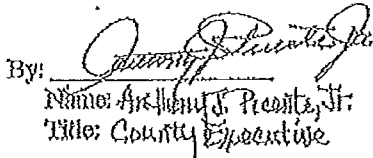 By: Anthony J. Picente Jr.
Name: Anthony J. Picente, Jr.
Title: County Executive